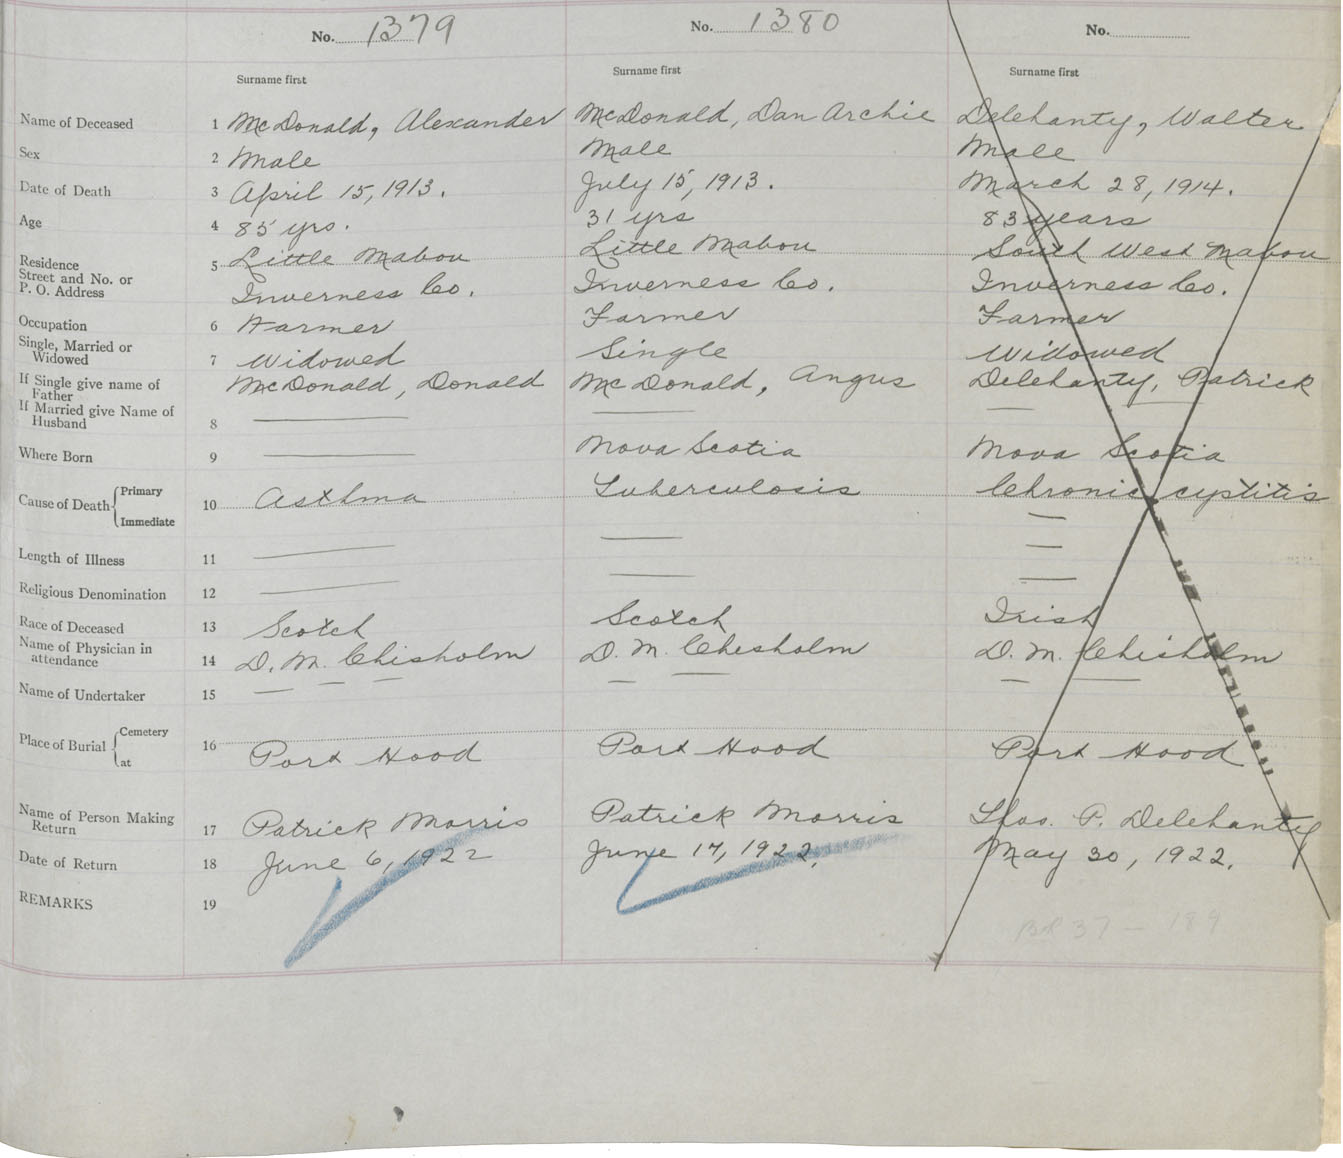 No. 1379 No. 1380 No.
Surname first Surname first Surname first
Name of Deceased 1 McDonald, Alexander McDonald, Dan Archie Delehanty, Walter
Sex 2 Male Male Male
Date of Death 3 April 15, 1913. July 15, 1913. March 28, 1914.
Age 4 85 yrs. 31 yrs 83 years
Residence 5 Little Mabou Little Mabou South West Mabou
Street and No. or
P. O. Address Inverness Co. Inverness Co. Inverness Co.
Occupation 6 Farmer Farmer Farmer
Single, Married or
Widowed 7 Widowed Single Widowed
If Single give name of
Father McDonald, Donald McDonald, Angus Delehanty, Patrick
If Married give Name of
Husband 8
Where Born 9 Nova Scotia Nova Scotia
Cause of Death { Primary 10 Asthma Tuberculosis Chronic cystitis
Immediate
Length of Illness 11
Religious Denomination 12
Race of Deceased 13 Scotch Scotch Irish
Name of Physician in
attendance 14 D. M. Chisholm D. M. Chisholm D. M. Chisholm
Name of Undertaker 15
Place of Burial { Cemetery 16
at Port Hood Port Hood Port Hood
Name of Person Making
Return 17 Patrick Morris Patrick Morris Thos. P. Delehanty
Date of Return 18 June 6, 1922 June 17, 1922. May 30, 1922.
REMARKS 19
37 - 189